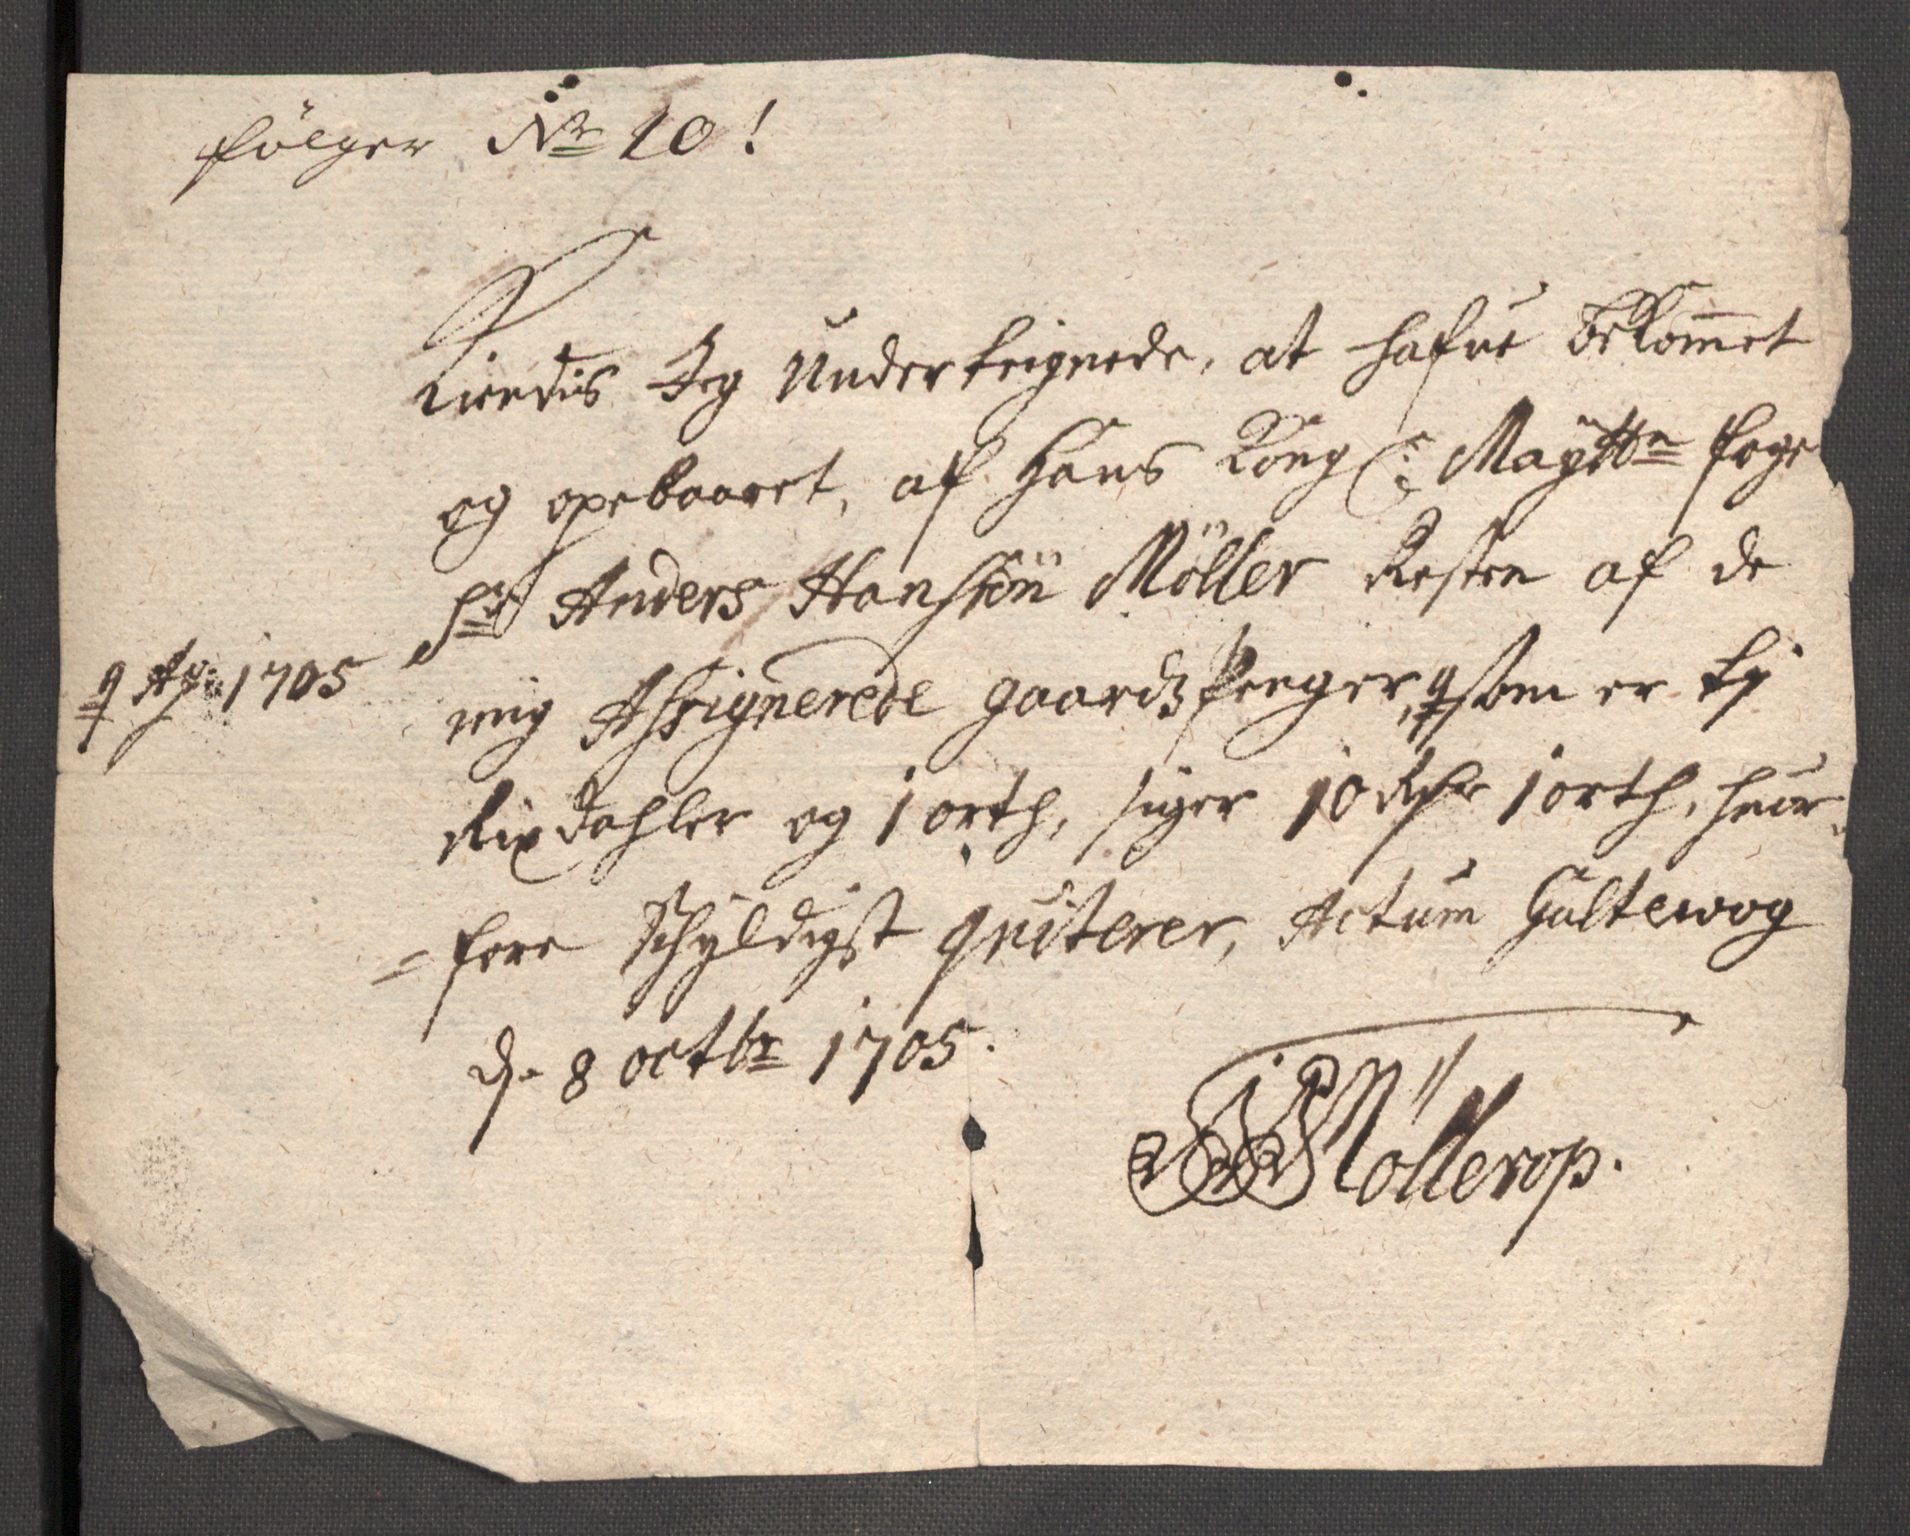 følger No 10!
Kiendis Jeg Underteignede, at hafue bekommet
og opebaaret, af Hans Kong: Maÿtts foge
Sr Anders Hanssön Möller Resten af de
mig Assignerede gaards penger, som er ti
Rixdahler og 1 orth, siger 10 Rdr 1 orth, huor
= fore schyldigst quiterer, Actum Gultewog
d. 8 octbr 1705.
Möllerop.
ꝑ Ao 1705